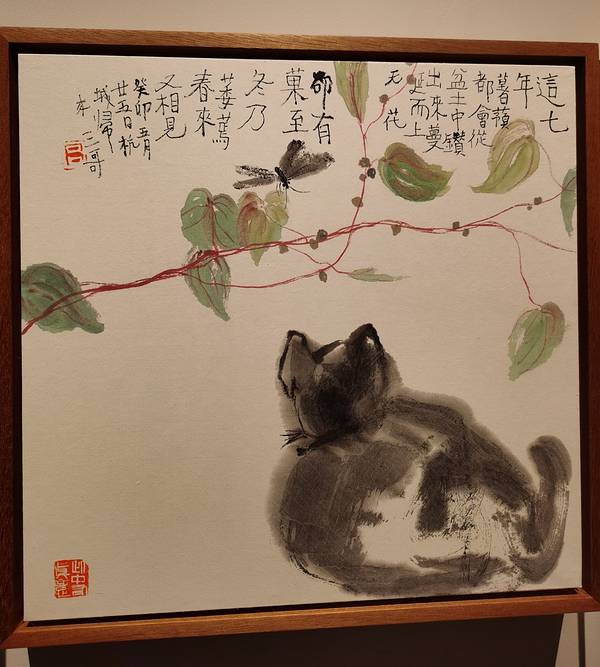 這七
年
薯蕷
都會從
盆土中鑽
出來蔓
延而上
无花
卻有
菓至
冬乃
萎蔫
春來
又相見
癸卯五月
廿五日杭
城歸
来 三哥
吕
此中有真意